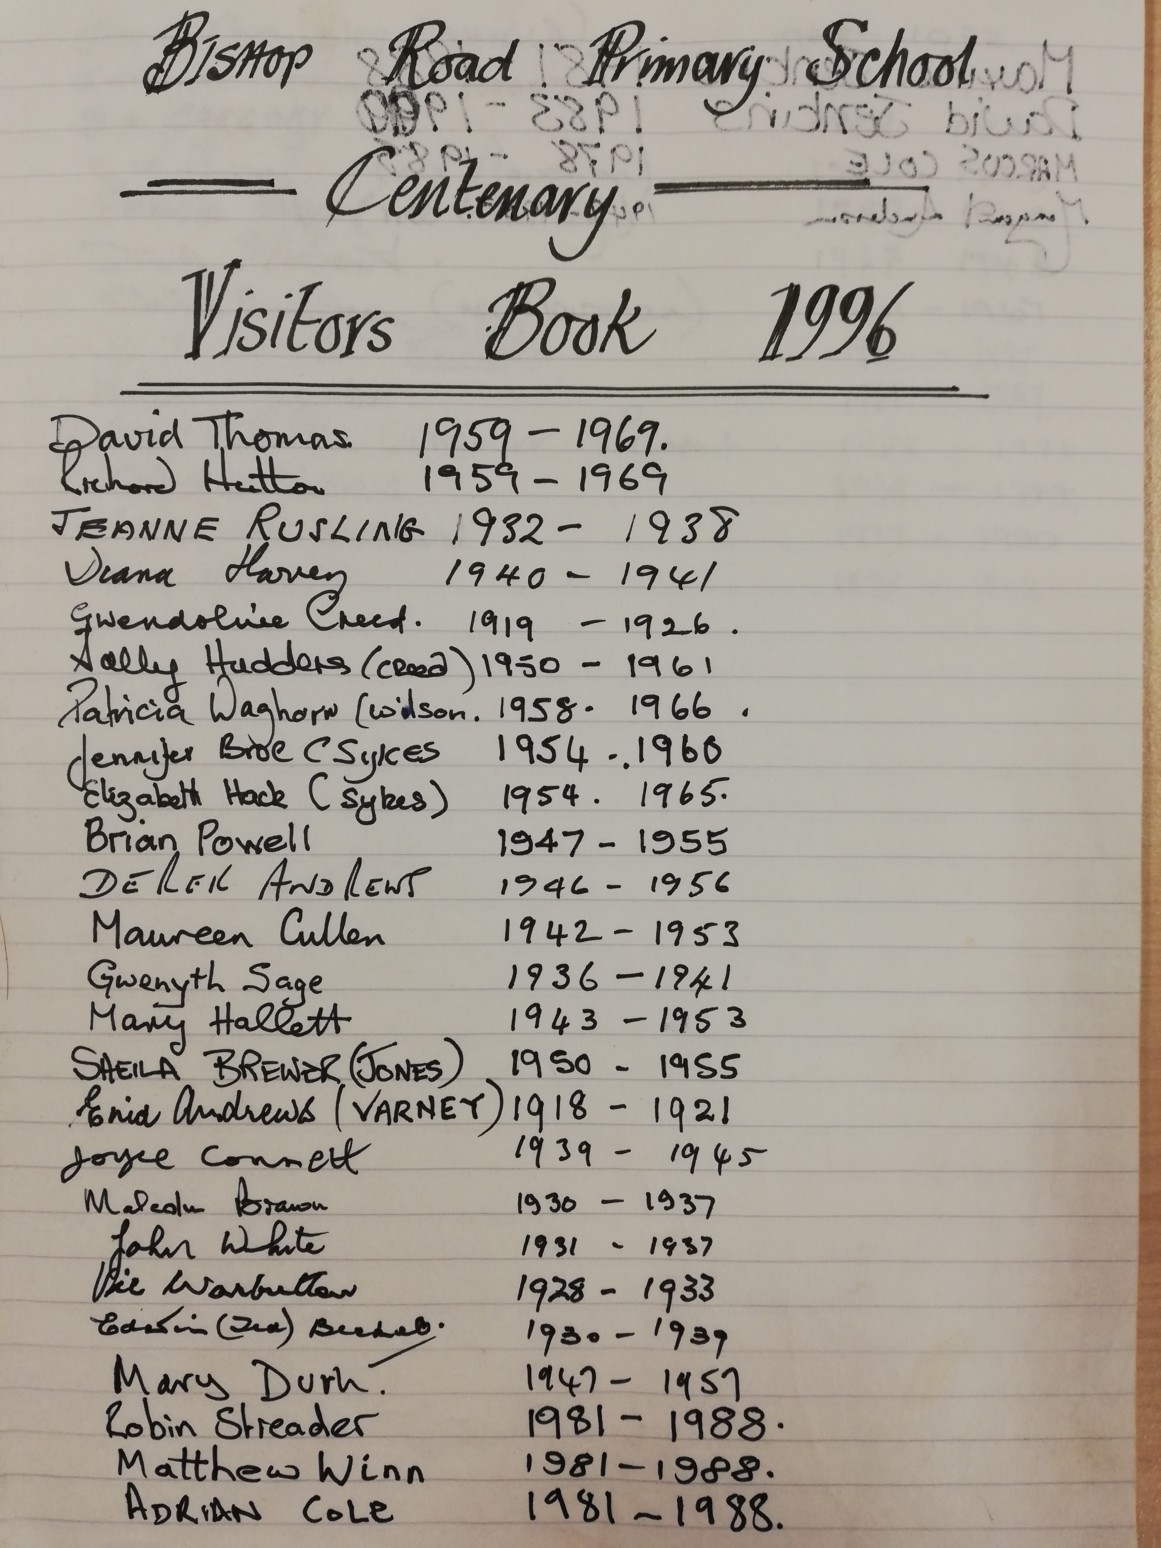 Bishop Road Primary School
Centenary
Visitors Book 1996
David Thomas 1959 - 1969.
Richard Hutton 1959 - 1969
JEANNE RUSLING 1932 - 1938
Diana Harvey 1940 - 1941
Gwendoline Creed. 1919 - 1926.
Sally Hudders (creed) 1950 - 1961
Patricia Waghorn (Wilson. 1958. 1966.
Jennifer (Sykes 1954 - 1960
Elizabeth Hack (Sykes) 1954. 1965.
Brian Powell 1947 - 1955
DEREK ANDREWS 1946 - 1956
Maureen Cullen 1942 - 1953
Gwenyth Sage 1936 - 1941
Mary Hallett 1943 - 1953
SHEILA BREWER (JONES) 1950 - 1955
Enid Andrews (VARNEY) 1918 - 1921
Joyce Connett 1939 - 1945
Malcolm Brawn 1930 - 1937
John White 1931 - 1937
Vic Warbutton 1928 - 1933
Edwin (Ted) 1930 - 1939
Mary Durk. 1947 - 1957
Robin Streader 1981 - 1988.
Matthew Winn 1981 - 1988.
ADRIAN COLE 1981 - 1988.